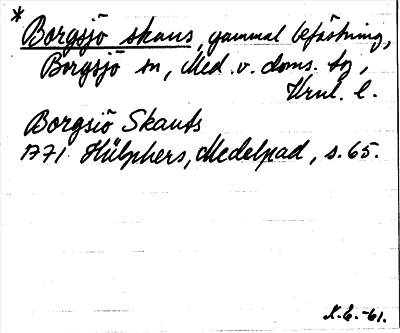 * Borgsjö skans, gammal befästning,
Borgsjö sn, Med. v. doms. tg,
Vrnl. l.
Borgsiö Skants
1771 Hülphers, Medelpad, s. 65.
X.E.-61.